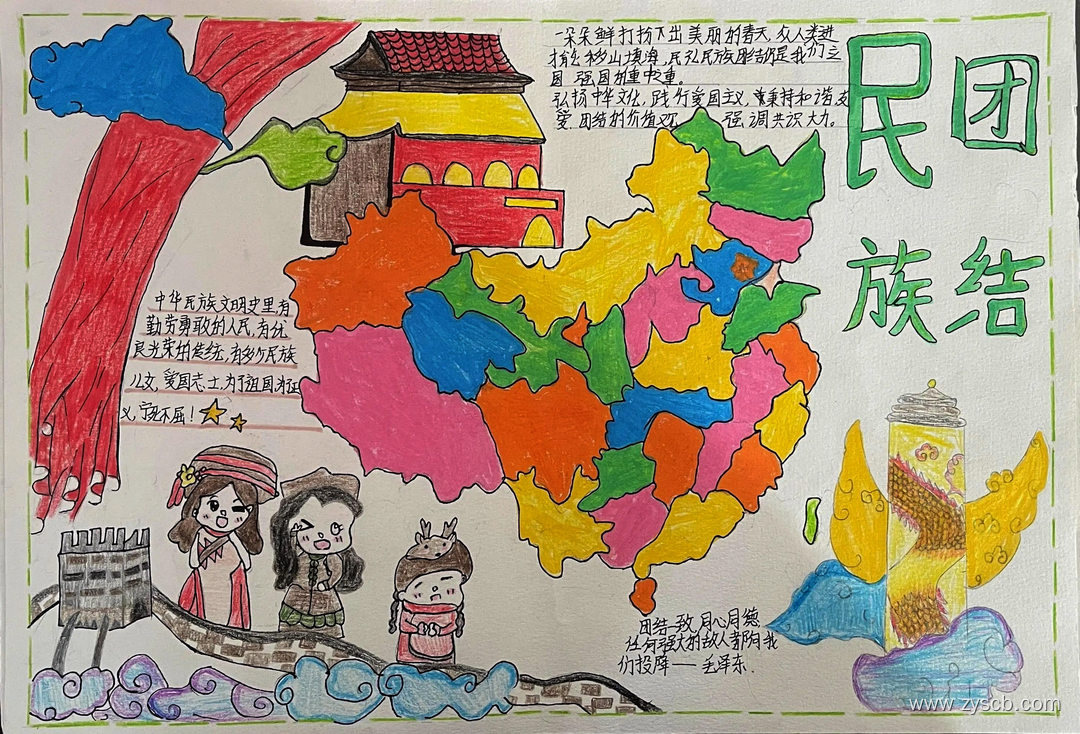 民族团结
一朵朵鲜打扮不出美丽的春天,众人类进
才能移山填海,民弘民族团结的是我们之
国,强国的重中之重。
弘扬中华文化,践行爱国主义,秉持和谐友
爱,团结的价值观 强调共识大力。
中华民族文明史里,有
勤劳勇敢的人民,有优
良光荣的传统,有多个民族
儿女,爱国志士,为了祖国,为正
义,宁死不屈!
团结一致,同心同德
任何强大的敌人都向我
们投降——毛泽东.
www.zyscb.com